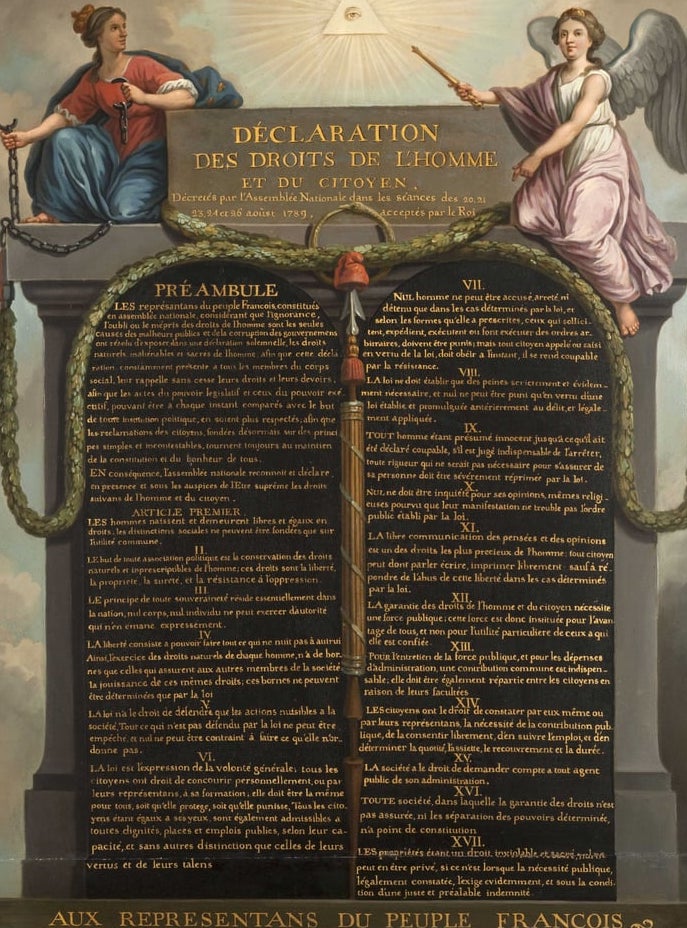 DÉCLARATION
DES DROITS DE L'HOMME
ET DU CITOYEN,
Décretés par l'Assemblée Nationale dans les séances des 20, 21
23, 24 et 26 aoûst 1789, acceptés par le Roi
PRÉAMBULE
LES représentans du peuple François, constitués
en assemblée nationale, considérant que l'ignorance,
l'oubli ou le mépris des droits de l'homme sont les seules
causes des malheurs publics et de la corruption des gouvernemens
ont résolu d'exposer dans une déclaration solemnelle, les droits
naturels, inaliénables et sacrés de l'homme, afin que cette décla
ration, constamment présente a tous les membres du corps
social, leur rappelle sans cesse leurs droits et leurs devoirs,
afin que les actes du pouvoir législatif et ceux du pouvoir exé
cutif, pouvant être à chaque instant comparés avec le but
de toute institution politique, en soient plus respectés; afin que
les reclamations des citoyens, fondées désormais sur des princi
pes simples et incontestables, tournent toujours au maintien
de la constitution et du bonheur de tous.
EN conséquence, l'assemblée nationale reconnoit et déclare,
en presence et sous les auspices de l'Etre suprême les droits
suivans de l'homme et du citoyen.
ARTICLE PREMIER.
LES hommes naissent et demeurent libres et égaux en
droits; les distinctions sociales ne peuvent être fondées que sur
l'utilité commune.
II.
LE but de toute association politique est la conservation des droits
naturels et inprescriptibles de l'homme; ces droits sont la liberté,
la propriété, la sureté, et la résistance à l'oppression.
III.
LE principe de toute souveraineté réside essentiellement dans
la nation, nul corps, nul individu ne peut exercer d'autorité
qui n'en émane expressément.
IV
LA liberté consiste a pouvoir faire tout ce qui ne nuit pas à autrui
Ainsi, l'exercice des droits naturels de chaque homme, n'a de bor
nes que celles qui assurent aux autres membres de la société
la jouissance de ces mêmes droits; ces bornes ne peuvent
être déterminées que par la loi
V.
LA loi n'a le droit de défendre que les actions nuisibles a la
société. Tout ce qui n'est pas défendu par la loi ne peut être
empêché, et nul ne peut être contraint à faire ce qu'elle n'or-
donne pas.
VI.
LA loi est l'expression de la volonté générale; tous les
citoyens ont droit de concourir personnellement, ou par
leurs représentans, à sa formation; elle doit être la même
pour tous, soit qu'elle protege, soit qu'elle punisse, Tous les cito
yens étant égaux à ses yeux, sont également admissibles a
toutes dignités, places et emplois publics, selon leur ca-
pacité, et sans autres distinction que celles de leurs
vertus et de leurs talens
VII.
NUL homme ne peut être accusé, arreté ni
détenu que dans les cas déterminés par la loi, et
selon les formes qu'elle a prescrites, ceux qui sollici-
tent, expédient, exécutent ou font exécuter des ordres ar-
bitraires, doivent être punis; mais tout citoyen appelé ou saisi
en vertu de la loi, doit obéir a l'instant, il se rend coupable
par la résistance.
VIII.
LA loi ne doit établir que des peines strictement et évidem-
ment nécessaire, et nul ne peut être puni qu'en vertu d'une
loi établie et promulguée antérierement au délit, et légale-
ment appliquée.
IX.
TOUT homme étant présumé innocent jusqu'à ce qu'il ait
été déclaré coupable, s'il est jugé indispensable de l'arrêter,
toute rigueur qui ne serait pas nécessaire pour s'assurer de
sa personne doit être sévèrement réprimée par la loi.
X.
NUL ne doit être inquiété pour ses opinions, mêmes religi-
euses pourvu que leur manifestation ne trouble pas l'ordre
public établi par la loi.
XI.
LA libre communication des pensées et des opinions
est un des droits les plus precieux de l'homme: tout citoyen
peut dont parler écrire, imprimer librement: sauf à ré-
pondre de l'abus de cette liberté dans les cas déterminés
par la loi.
XII.
LA garantie des droits de l'homme et du citoyen nécessite
une force publique; cette force est donc instituée pour l'avan
tage de tous, et non pour l'utilité particuliere de ceux a qui
elle est confiée.
XIII.
Pour l'entretien de la force publique, et pour les dépenses
d'administration, une contribution commune est indispen-
sable; elle doit être également répartie entre les citoyens en
raison de leurs facultées
XIV
LES citoyens ont le droit de constater par eux même ou
par leurs représentans, la nécessité de la contribution pub-
lique, de la consentir librement, d'en suivre l'emploi, et d'en
déterminer la quotité, l'assiette, le recouvrement et la durée.
XV.
LA société a le droit de demander compte a tout agent
public de son administration.
XVI.
TOUTE société, dans laquelle la garantie des droits n'est
pas assurée, ni les séparation des pouvoirs déterminée,
n'a point de constitution
XVII.
LES propriétés étant un droit inviolable et sacré, nul ne
peut en être privé, si ce n'est lorsque la nécessité publique,
légalement constatée, l'exige evidemment, et sous la condi
tion d'une juste et préalable indemnité
AUX REPRESENTANS DU PEUPLE FRANCOIS